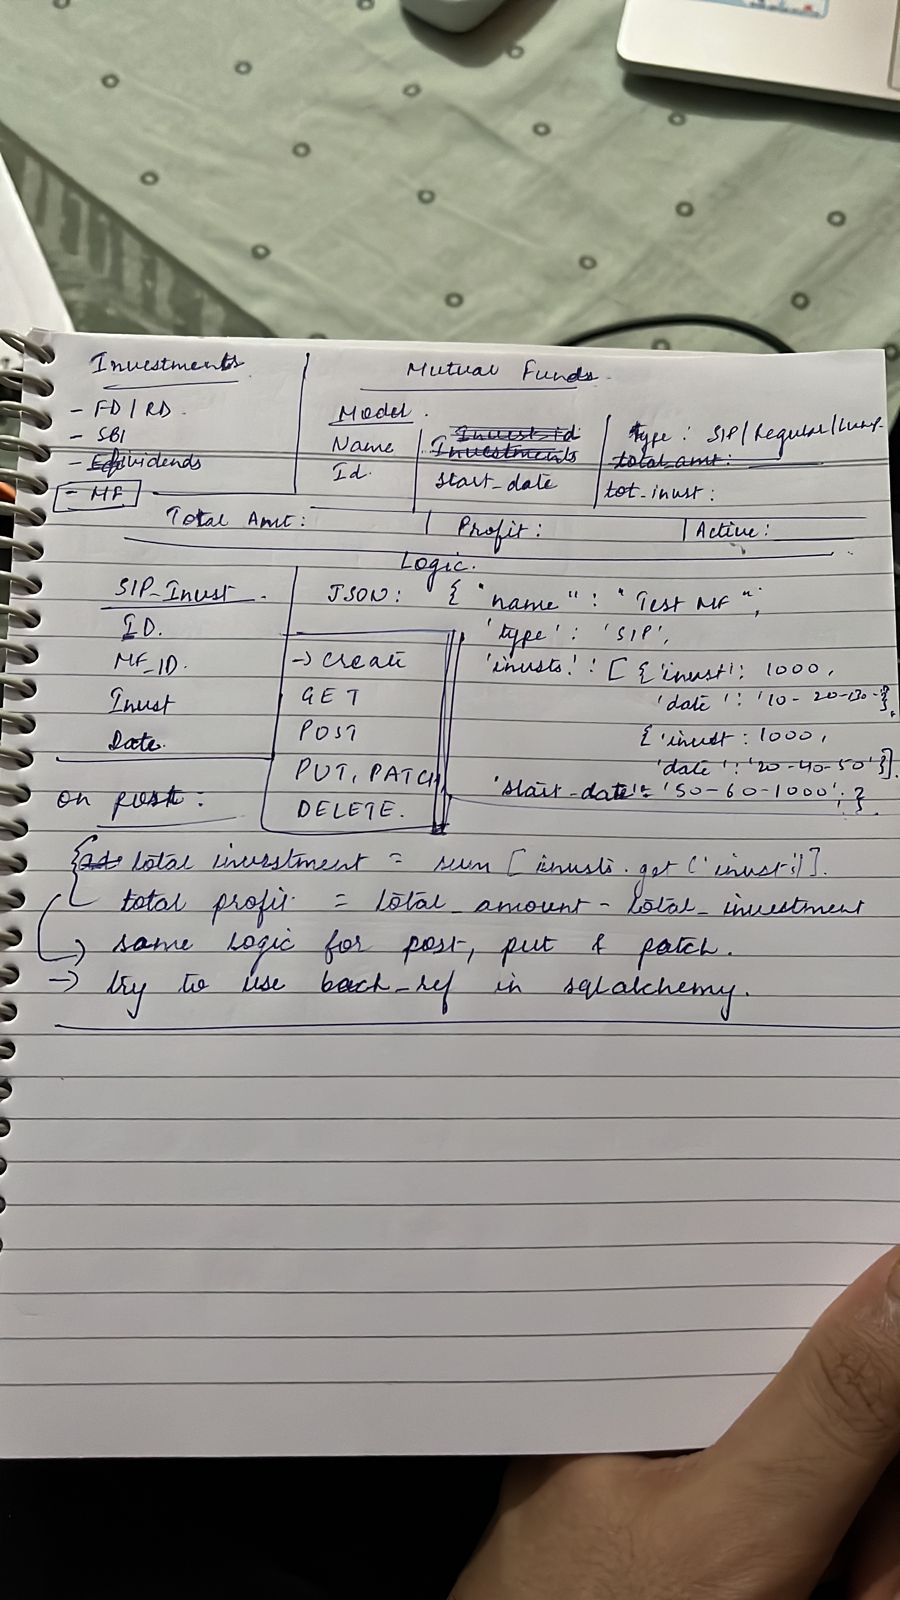 Investments
- FD/RD.
- SBI
- Dividends
- MF
Mutual Funds.
Model.
Name
Id.
Invest-id
Investments
start_date
type: SIP/Regular/Lump-
total amt:
tot-invst:
Total Amt:
Profit:
Active:
Logic.
SIP_Invst.
ID.
MF_ID.
Invst
Date.
JSON: { "name": "Test MF",
'type': 'SIP',
'invsts': [ {'invst': 1000,
'date': '10-20-130-'},
{'invst: 1000,
'date': '20-40-50'}].
'start-date': '50-60-1000'; }.
-> Create
GET
POST
PUT, PATCH
DELETE.
on post:
total investment = sum [invsts.get('invst')].
total profit = total_amount - total_investment
-> same logic for post, put & patch.
-> try to use back_ref in sqlalchemy.